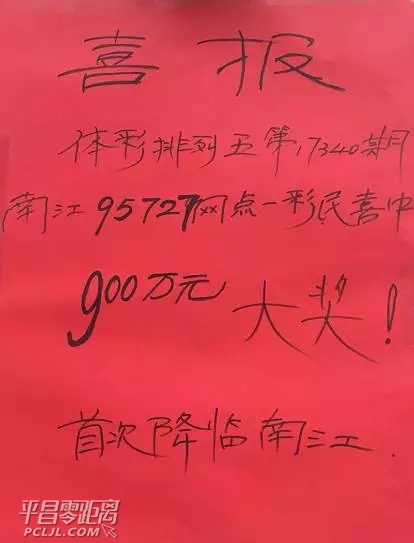 喜报
体彩排列五第17340期
南江95727xx网点一彩民喜中
900万元大奖！
首次降临南江.
平昌零距离
PCLJL.COM